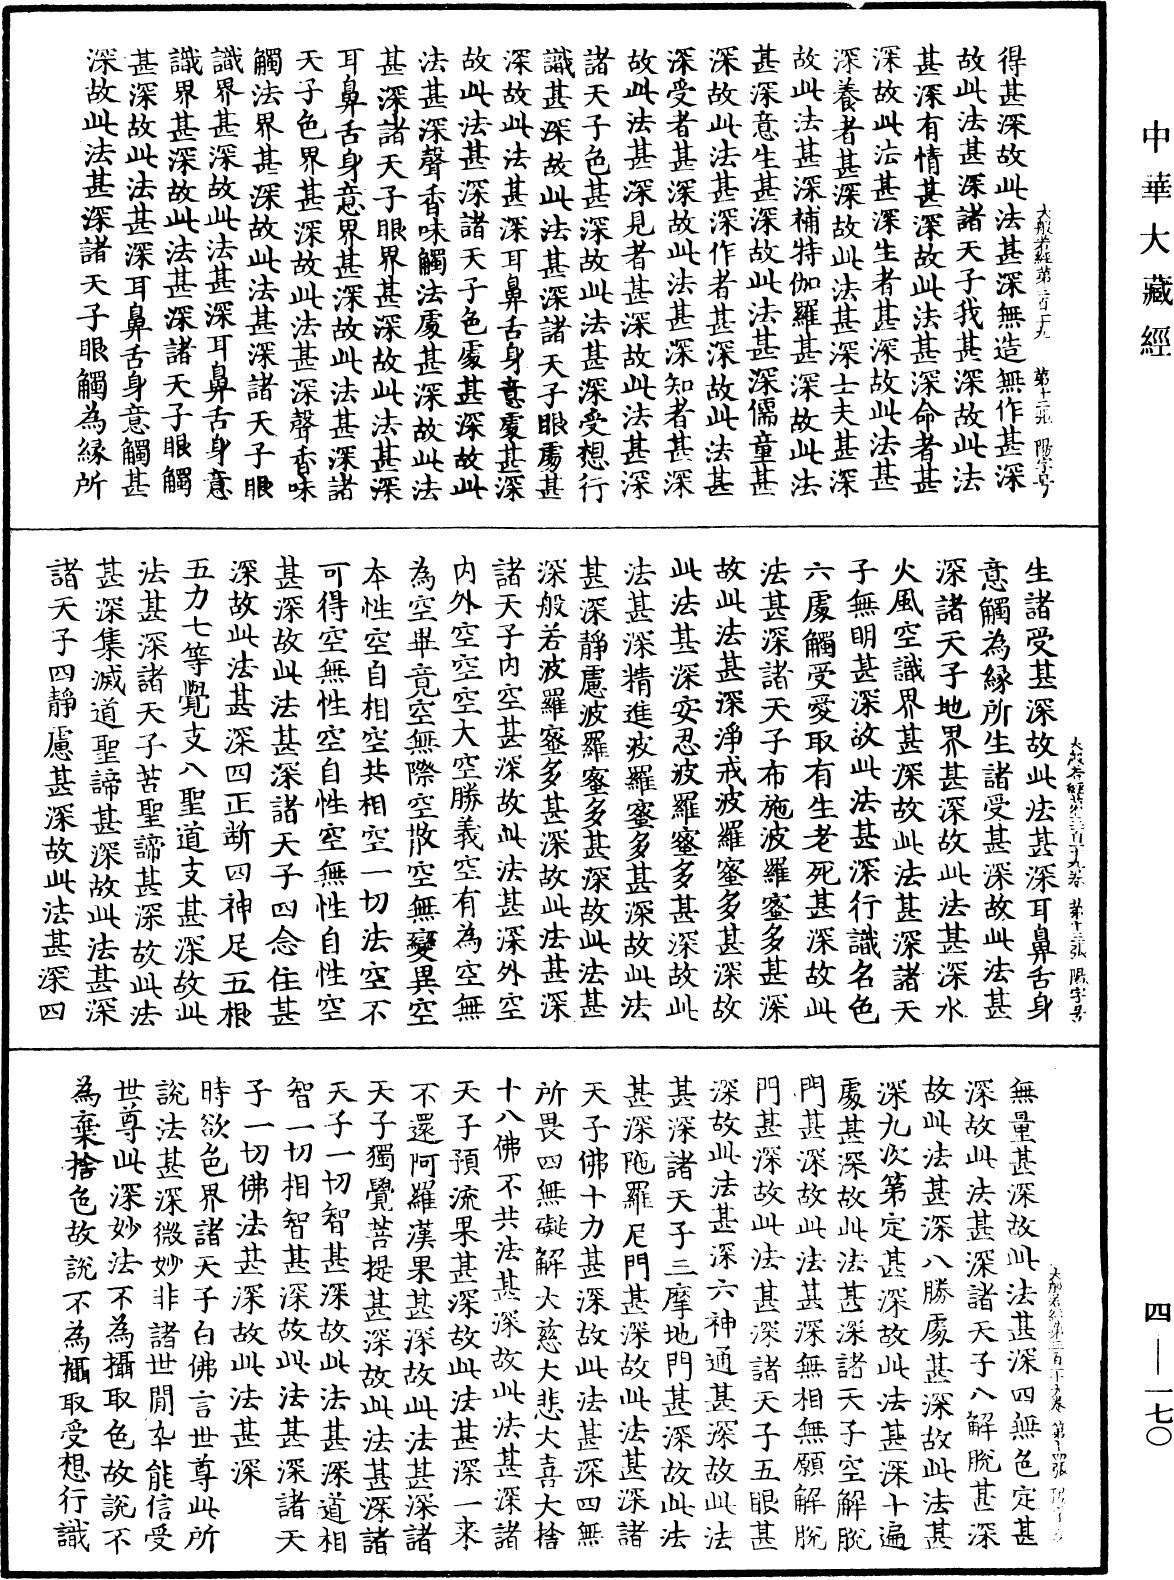 中華大藏經
得甚深故此法甚深無造無作甚深
故此法甚深諸天子我甚深故此法
甚深有情甚深故此法甚深命者甚
深故此法甚深生者甚深故此法甚
深養者甚深故此法甚深士夫甚深
故此法甚深補特伽羅甚深故此法
甚深意生甚深故此法甚深儒童甚
深故此法甚深作者甚深故此法甚
深受者甚深故此法甚深知者甚深
故此法甚深見者甚深故此法甚深
諸天子色甚深故此法甚深受想行
識甚深故此法甚深諸天子眼處甚
深故此法甚深耳鼻舌身意處甚深
故此法甚深諸天子色處甚深故此
法甚深聲香味觸法處甚深故此法
甚深諸天子眼界甚深故此法甚深
耳鼻舌身意界甚深故此法甚深諸
天子色界甚深故此法甚深聲香味
觸法界甚深故此法甚深諸天子眼
識界甚深故此法甚深耳鼻舌身意
識界甚深故此法甚深諸天子眼觸
甚深故此法甚深耳鼻舌身意觸甚
深故此法甚深諸天子眼觸為緣所
生諸受甚深故此法甚深耳鼻舌身
意觸為緣所生諸受甚深故此法甚
深諸天子地界甚深故此法甚深水
火風空識界甚深故此法甚深諸天
子無明甚深故此法甚深行識名色
六處觸受愛取有生老死甚深故此
法甚深諸天子布施波羅蜜多甚深
故此法甚深淨戒波羅蜜多甚深故
此法甚深安忍波羅蜜多甚深故此
法甚深精進波羅蜜多甚深故此法
甚深靜慮波羅蜜多甚深故此法甚
深般若波羅蜜多甚深故此法甚深
諸天子內空甚深故此法甚深外空
內外空空空大空勝義空有為空無
為空畢竟空無際空散空無變異空
本性空自相空共相空一切法空不
可得空無性空自性空無性自性空
甚深故此法甚深諸天子四念住甚
深故此法甚深四正斷四神足五根
五力七等覺支八聖道支甚深故此
法甚深諸天子苦聖諦甚深故此法
甚深集滅道聖諦甚深故此法甚深
諸天子四靜慮甚深故此法甚深四
無量甚深故此法甚深四無色定甚
深故此法甚深諸天子八解脫甚深
故此法甚深八勝處甚深故此法甚
深九次第定甚深故此法甚深十遍
處甚深故此法甚深諸天子空解脫
門甚深故此法甚深無相無願解脫
門甚深故此法甚深諸天子五眼甚
深故此法甚深六神通甚深故此法
甚深諸天子三摩地門甚深故此法
甚深陁羅尼門甚深故此法甚深諸
天子佛十力甚深故此法甚深四無
所畏四無礙解大慈大悲大喜大捨
十八佛不共法甚深故此法甚深諸
天子預流果甚深故此法甚深一來
不還阿羅漢果甚深故此法甚深諸
天子獨覺菩提甚深故此法甚深諸
天子一切智甚深故此法甚深道相
智一切相智甚深故此法甚深諸天
子一切佛法甚深故此法甚深
時欲色界諸天子白佛言世尊此所
說法甚深微妙非諸世間卒能信受
世尊此深妙法不為攝取色故說不
為棄捨色故說不為攝取受想行識
四—一七〇